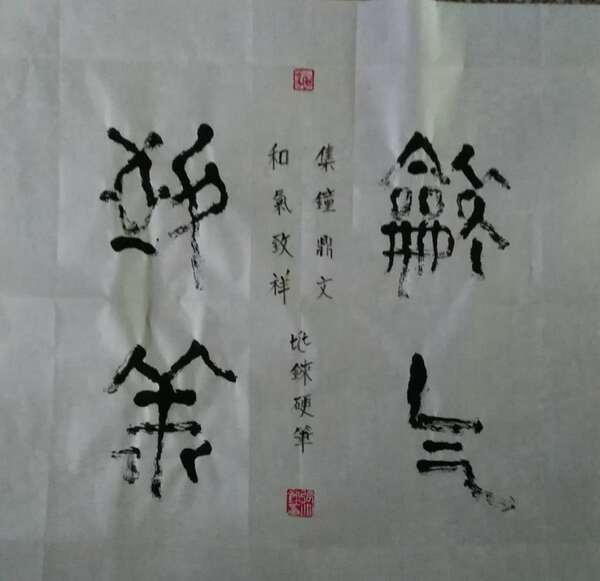 龢气
集鐘鼎文
和氣致祥
硬筆
致祥